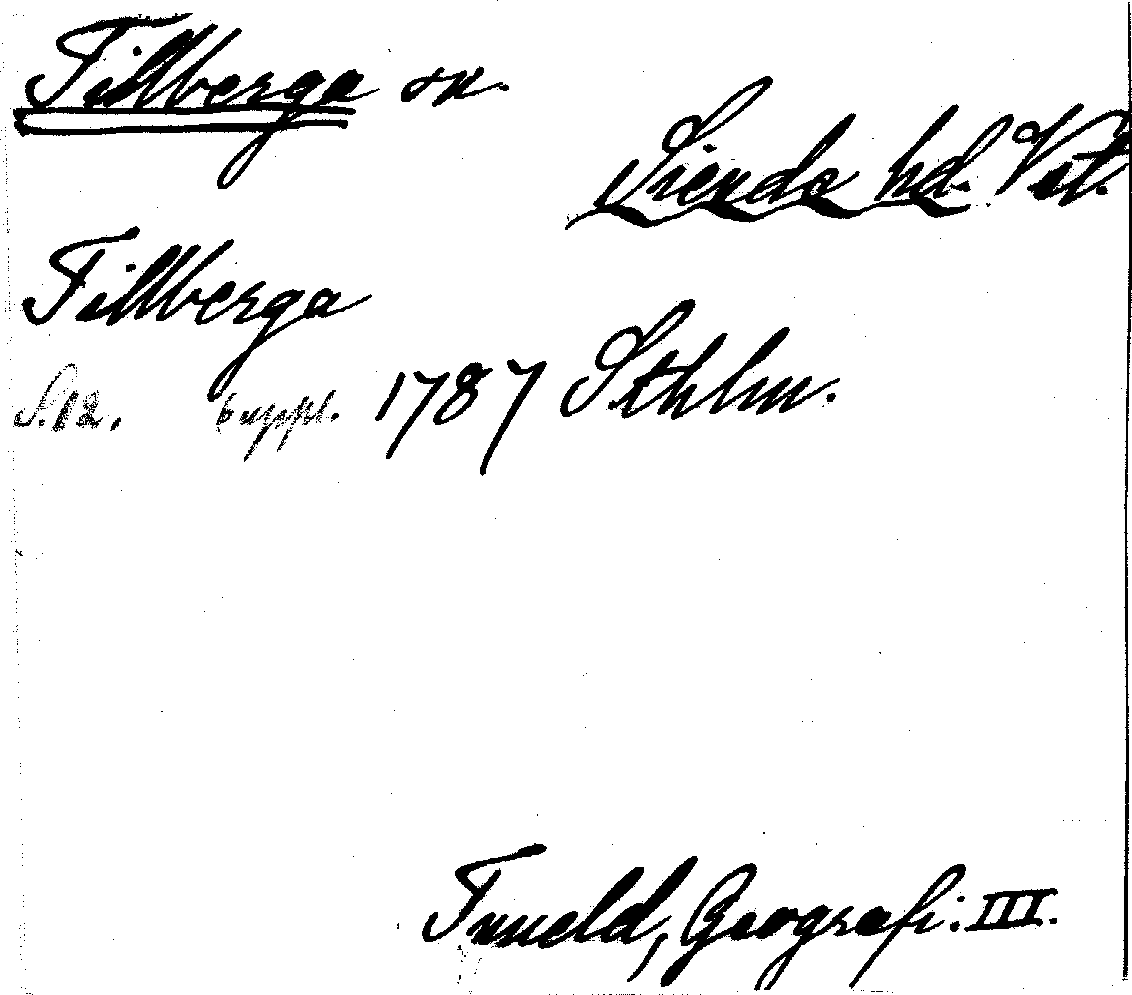 Tillberga sn.
Siende hd. Vst.
Tillberga
S. 12. suppl. 1787 Sthlm.
Tuneld, Geografi. III.